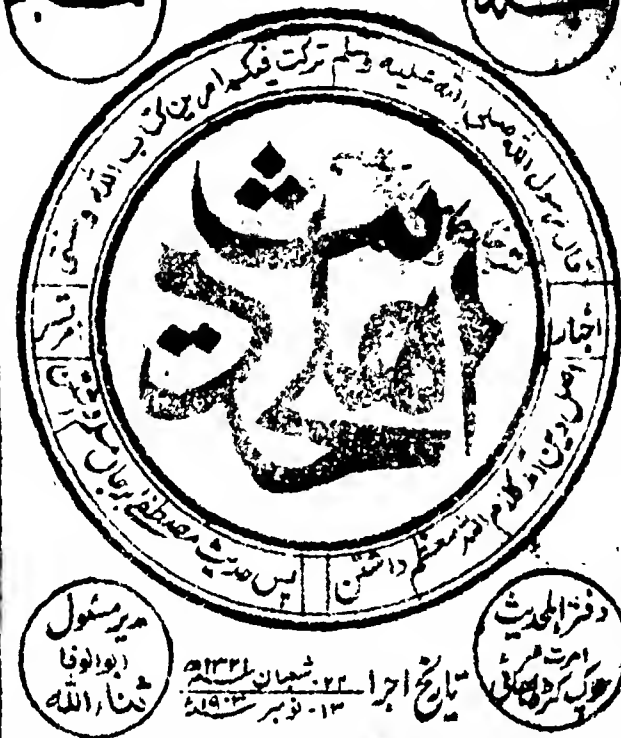 قال رسول الله صلی الله علیه وسلم ترکت فیکم امرین کتاب الله وسنتی
اخبار
اهلحدیث
امرتسر
اصل دین آمد کلام الله معظم داشتن
پس حدیث مصطفےٰ بر جان مسلم داشتن
دفتر اہلحدیث
امرتسر
تاریخ اجرا
۲۲۔ شعبان ۱۳۲۱ھ
۱۳۔ نومبر ۱۹۰۳ء
مدیر مسئول
ابوالوفا
ثناء الله